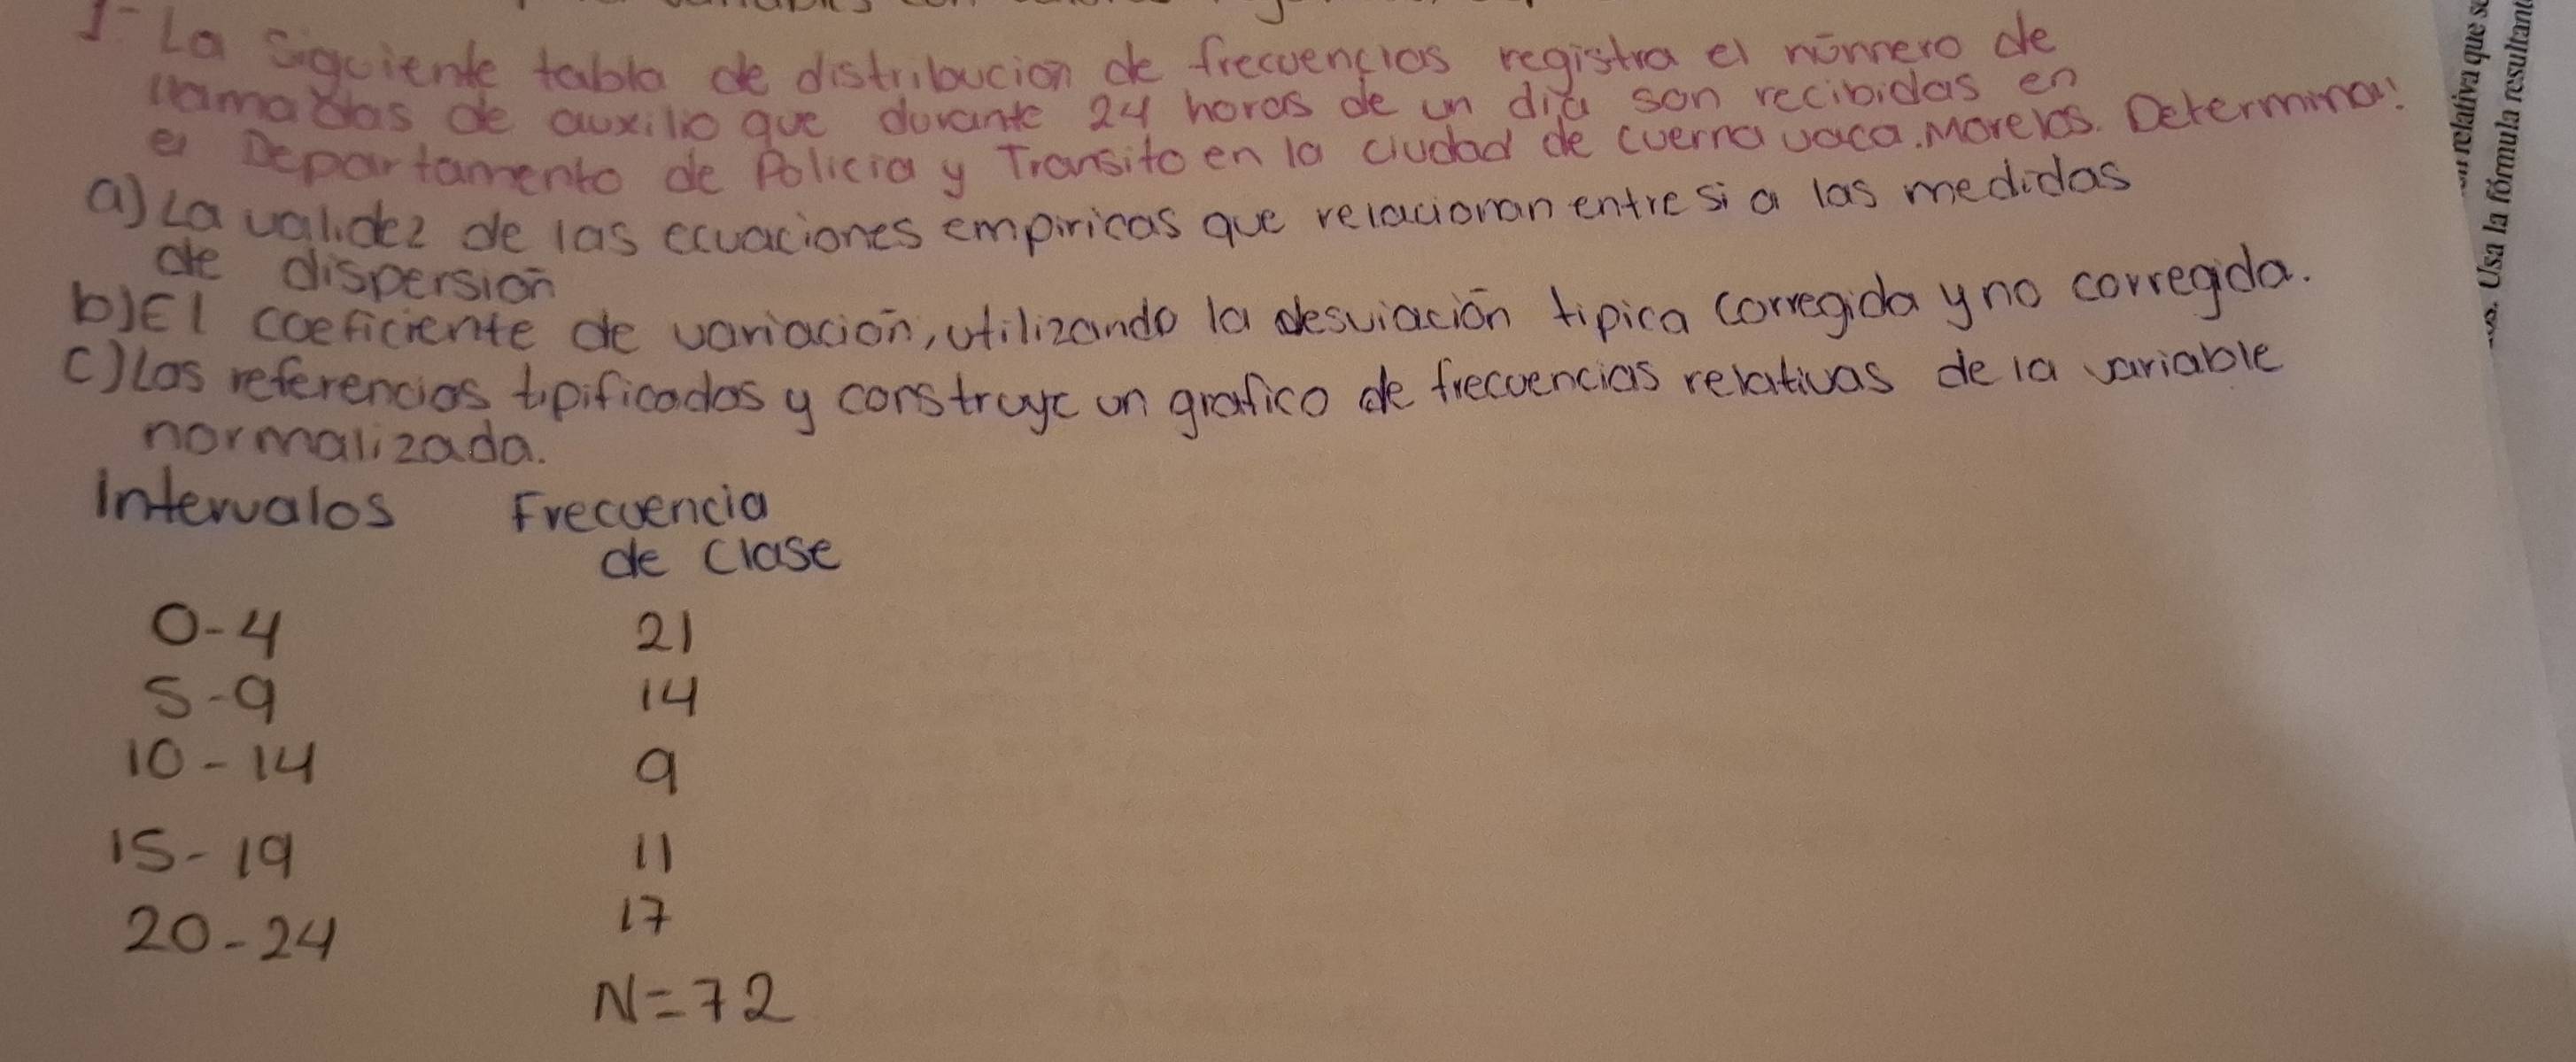 1- La Siguiente tabla de distribución de frecuencias registra el número de
llamadas de auxilio que durante 24 horas de un día son recibidas en
el Departamento de Policia y Transito en la ciudad de cuernavaca. Morelos. Determina:
a) La validez de las ecuaciones empiricas que relacionan entre si a las medidas
de dispersión
b) El coeficiente de variación, utilizando la desviación tipica corregida y no corregida.
c) Las referencias tipificadas y construye un grafico de frecuencias relativas de la variable
normalizada.
Intervalos Frecuencia
de Clase
0-4 21
5-9 14
10-14 9
15-19 11
20-24 17
N=72
relativa que s
os. Usa la fórmula resultant